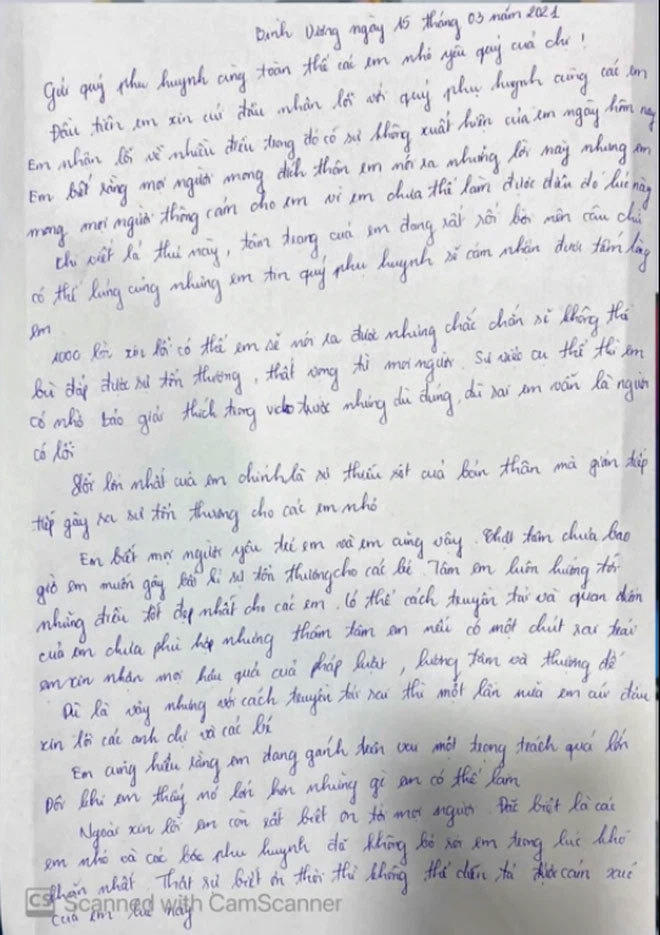 Bình Dương ngày 15 tháng 03 năm 2021
Gửi quý phụ huynh cùng toàn thể các em nhỏ yêu quý của chị!
Đầu tiên em xin cúi đầu nhận lỗi với quý phụ huynh cùng các em
Em nhận lỗi về nhiều điều trong đó có sự không xuất hiện của em ngày hôm nay
Em biết rằng mọi người mong đích thân em nói ra những lời này nhưng em
mong mọi người thông cảm cho em vì em chưa thể làm được điều đó lúc này
Chỉ viết lá thư này, tâm trạng của em đang rất rối bời nên câu chữ
có thể lủng củng nhưng em tin quý phụ huynh sẽ cảm nhận được tấm lòng
em
1000 lần xin lỗi có thể em sẽ nói ra được nhưng chắc chắn sẽ không thể
bù đắp được sự tổn thương, thất vọng từ mọi người. Sự việc cụ thể thì em
có nhờ báo giải thích trong video trước nhưng dù đúng, dù sai em vẫn là người
có lỗi
Lỗi lớn nhất của em chính là sự thiếu sót của bản thân mà gián tiếp
tiếp gây ra sự tổn thương cho các em nhỏ
Em biết mọi người yêu trẻ em và em cũng vậy. Thật tâm chưa bao
giờ em muốn gây bất kì sự tổn thương cho các bé. Tâm em luôn hướng tới
những điều tốt đẹp nhất cho các em. Có thể cách truyền tải và quan điểm
của em chưa phù hợp nhưng thâm tâm em nếu có một chút sai trái
em xin nhận mọi hậu quả của pháp luật, lương tâm và thượng đế
Dù là vậy nhưng với cách truyền tải sai thì một lần nữa em cúi đầu
xin lỗi các anh chị và các bé
Em cũng hiểu rằng em đang gánh trên vai một trọng trách quá lớn
Đôi khi em thấy nó lớn hơn những gì em có thể làm
Ngoài xin lỗi em còn rất biết ơn tới mọi người. Đặc biệt là các
em nhỏ và các bậc phụ huynh đã không bỏ rơi em trong lúc khó
khăn nhất. Thật sự biết ơn thôi thì không thể diễn tả được cảm xúc
của em lúc này
CS Scanned with CamScanner